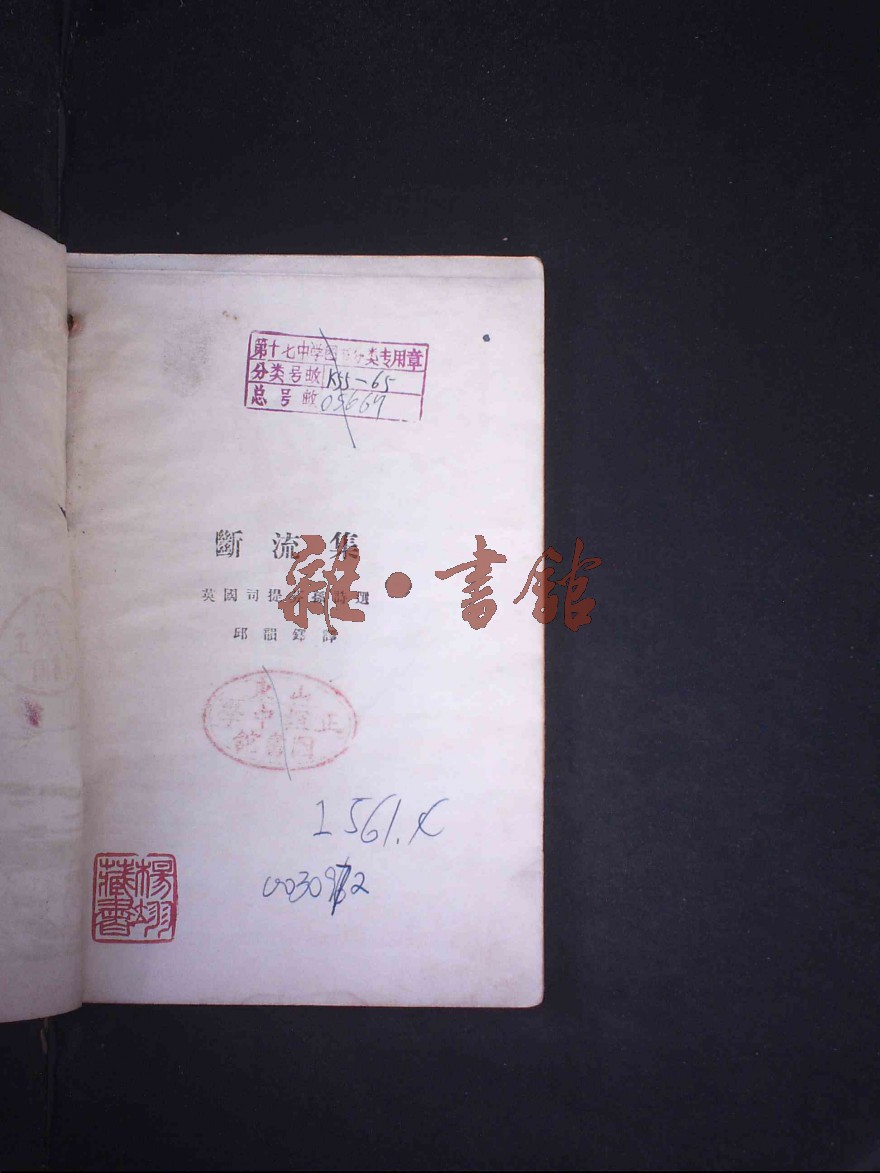 第十七中学图书分类专用章
分类号数 K55-65
总号数 05669
斷流集
雜·書館
英國司提 選
邱韻鐸譯
山東正誼中學圖書館
I561.4
003092
楊翊藏書